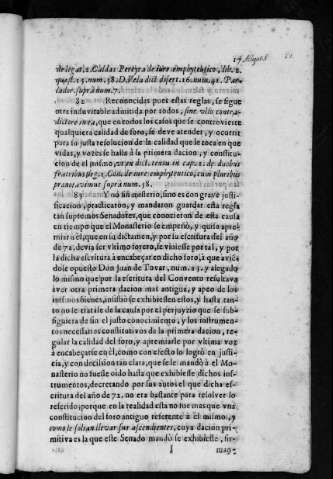 de legat. 2. Caldas Pereyra de iure emphyteutico, lib. 2.
quæst. 15. num. 38. D. Vela dict. disert. 16. num. 41. Par-
lador. suprà num. 7.
82 Reconocidas pues estas reglas, se sigue
otra inseparable admitida por todos, sine vllo contra-
dictore inea, que en todos los casos que se controvierte
qualquiera calidad de foro, se deve atender, y ocurrir
para su justa resolucion de la calidad que le toca en que
vidas, y vozes se halla à la primera dacion, y constitu-
cion de el mismo,
83 Y no sin misterio, sino es con grave justi-
ficacion, practicaron, y mandaron guardar esta regla
tan supremos Senadores, que conocieron de esta causa
en tiempo que el Monasterio se empeñò, y quiso apre-
miar à èl, que en su dictamen, y por su escritura del año
de 72. devia ser vltimo forero, se viniesse portal, y por
la dicha escritura à encabeçar en dicho foro, à que avien-
dose opuesto Don Juan de Tovar, num. 25. y alegado
lo mismo que por la escritura del Convento resultava
aver otra primera dacion mas antigua, y apeo de los
mismos bienes, insistiò se exhibiessen estos, y hasta tan-
to no se tratasse de la causa por el perjuyzio que se sub-
siguiera de sin el justo conocimiento, y los instrumen-
tos necessarios constitutivos de la primera dacion, re-
gular la calidad del foro, y apremiarle por vltima voz
à encabeçarse en èl, como con efecto lo logrò en justi-
cia, y con decission tan clara, que se le mandò à el Mo-
nasterio no fuesse oido hasta que exhibiesse dichos ins-
trumentos, decretando por sus autos el que dicha es-
critura del año de 72. no era bastante para resolver lo
referido; porque en la realidad esta no fue mas que vna
constitucion del foro antiguo referente à el mismo, y
como le solian llevar sus ascendientes, cuya dacion pri-
mitiva es la que este Senado mandò se exhibiesse, sir-